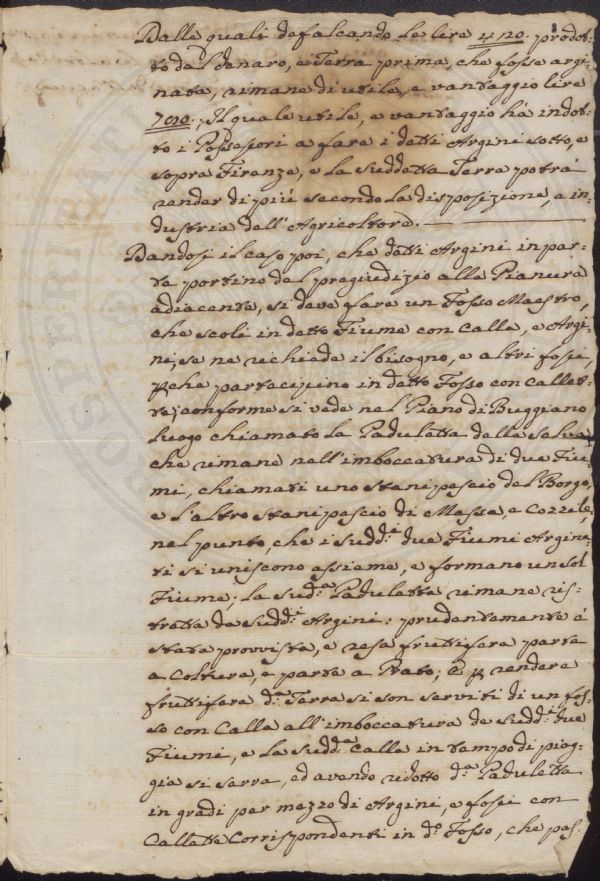 Dalle quali defalcando le lire 4120: prodot-
to del denaro, e Terra prima, che fosse argi-
nata, rimane di utile, e vantaggio lire
7090:, Il quale utile, e vantaggio hà indot-
to i Possessori a fare i detti Argini sotto, e
sopra Firenze, e la suddetta Terra potrà
render di più secondo la disposizione, e in-
dustria dell'Agricoltore.
Dandosi il caso poi, che detti Argini in par-
te portino del pregiudizio alla Pianura
adiacente, si deve fare un Fosso Maestro,
che scoli in detto Fiume con Calla, e Argi-
ni, se ne richiede il bisogno, e altri fossi,
pche partecipino in detto Fosso con Callet-
te; conforme si vede nel Piano di Buggiano
luogo chiamato la Paduletta della Salva
che rimane nell'imboccatura di due Fiu-
mi, chiamati uno Stanipescio del Borgo,
e l'altro Stanipescio di Massa, e Cozzile,
nel punto, che i sudd:i due Fiumi Argina-
ti si uniscono assieme, e formano un sol
Fiume; la sud:a Paduletta rimane ris-
tretta da sudd:i Argini: prudentemente è
stata provvista, e resa fruttifera parte
a Coltura, e parte a Prato; E p rendere
fruttifera d:a Terra si son serviti di un fos-
so con Calla all'imboccatura de sudd:i due
Fiumi, e la sudd:a Calla in tempo di piog-
gia si serra, ed avendo ridotto d:a Paduletta
in gradi per mezzo di Argini, e fossi con
Callette Corrispondenti in d:o Fosso, che pas-